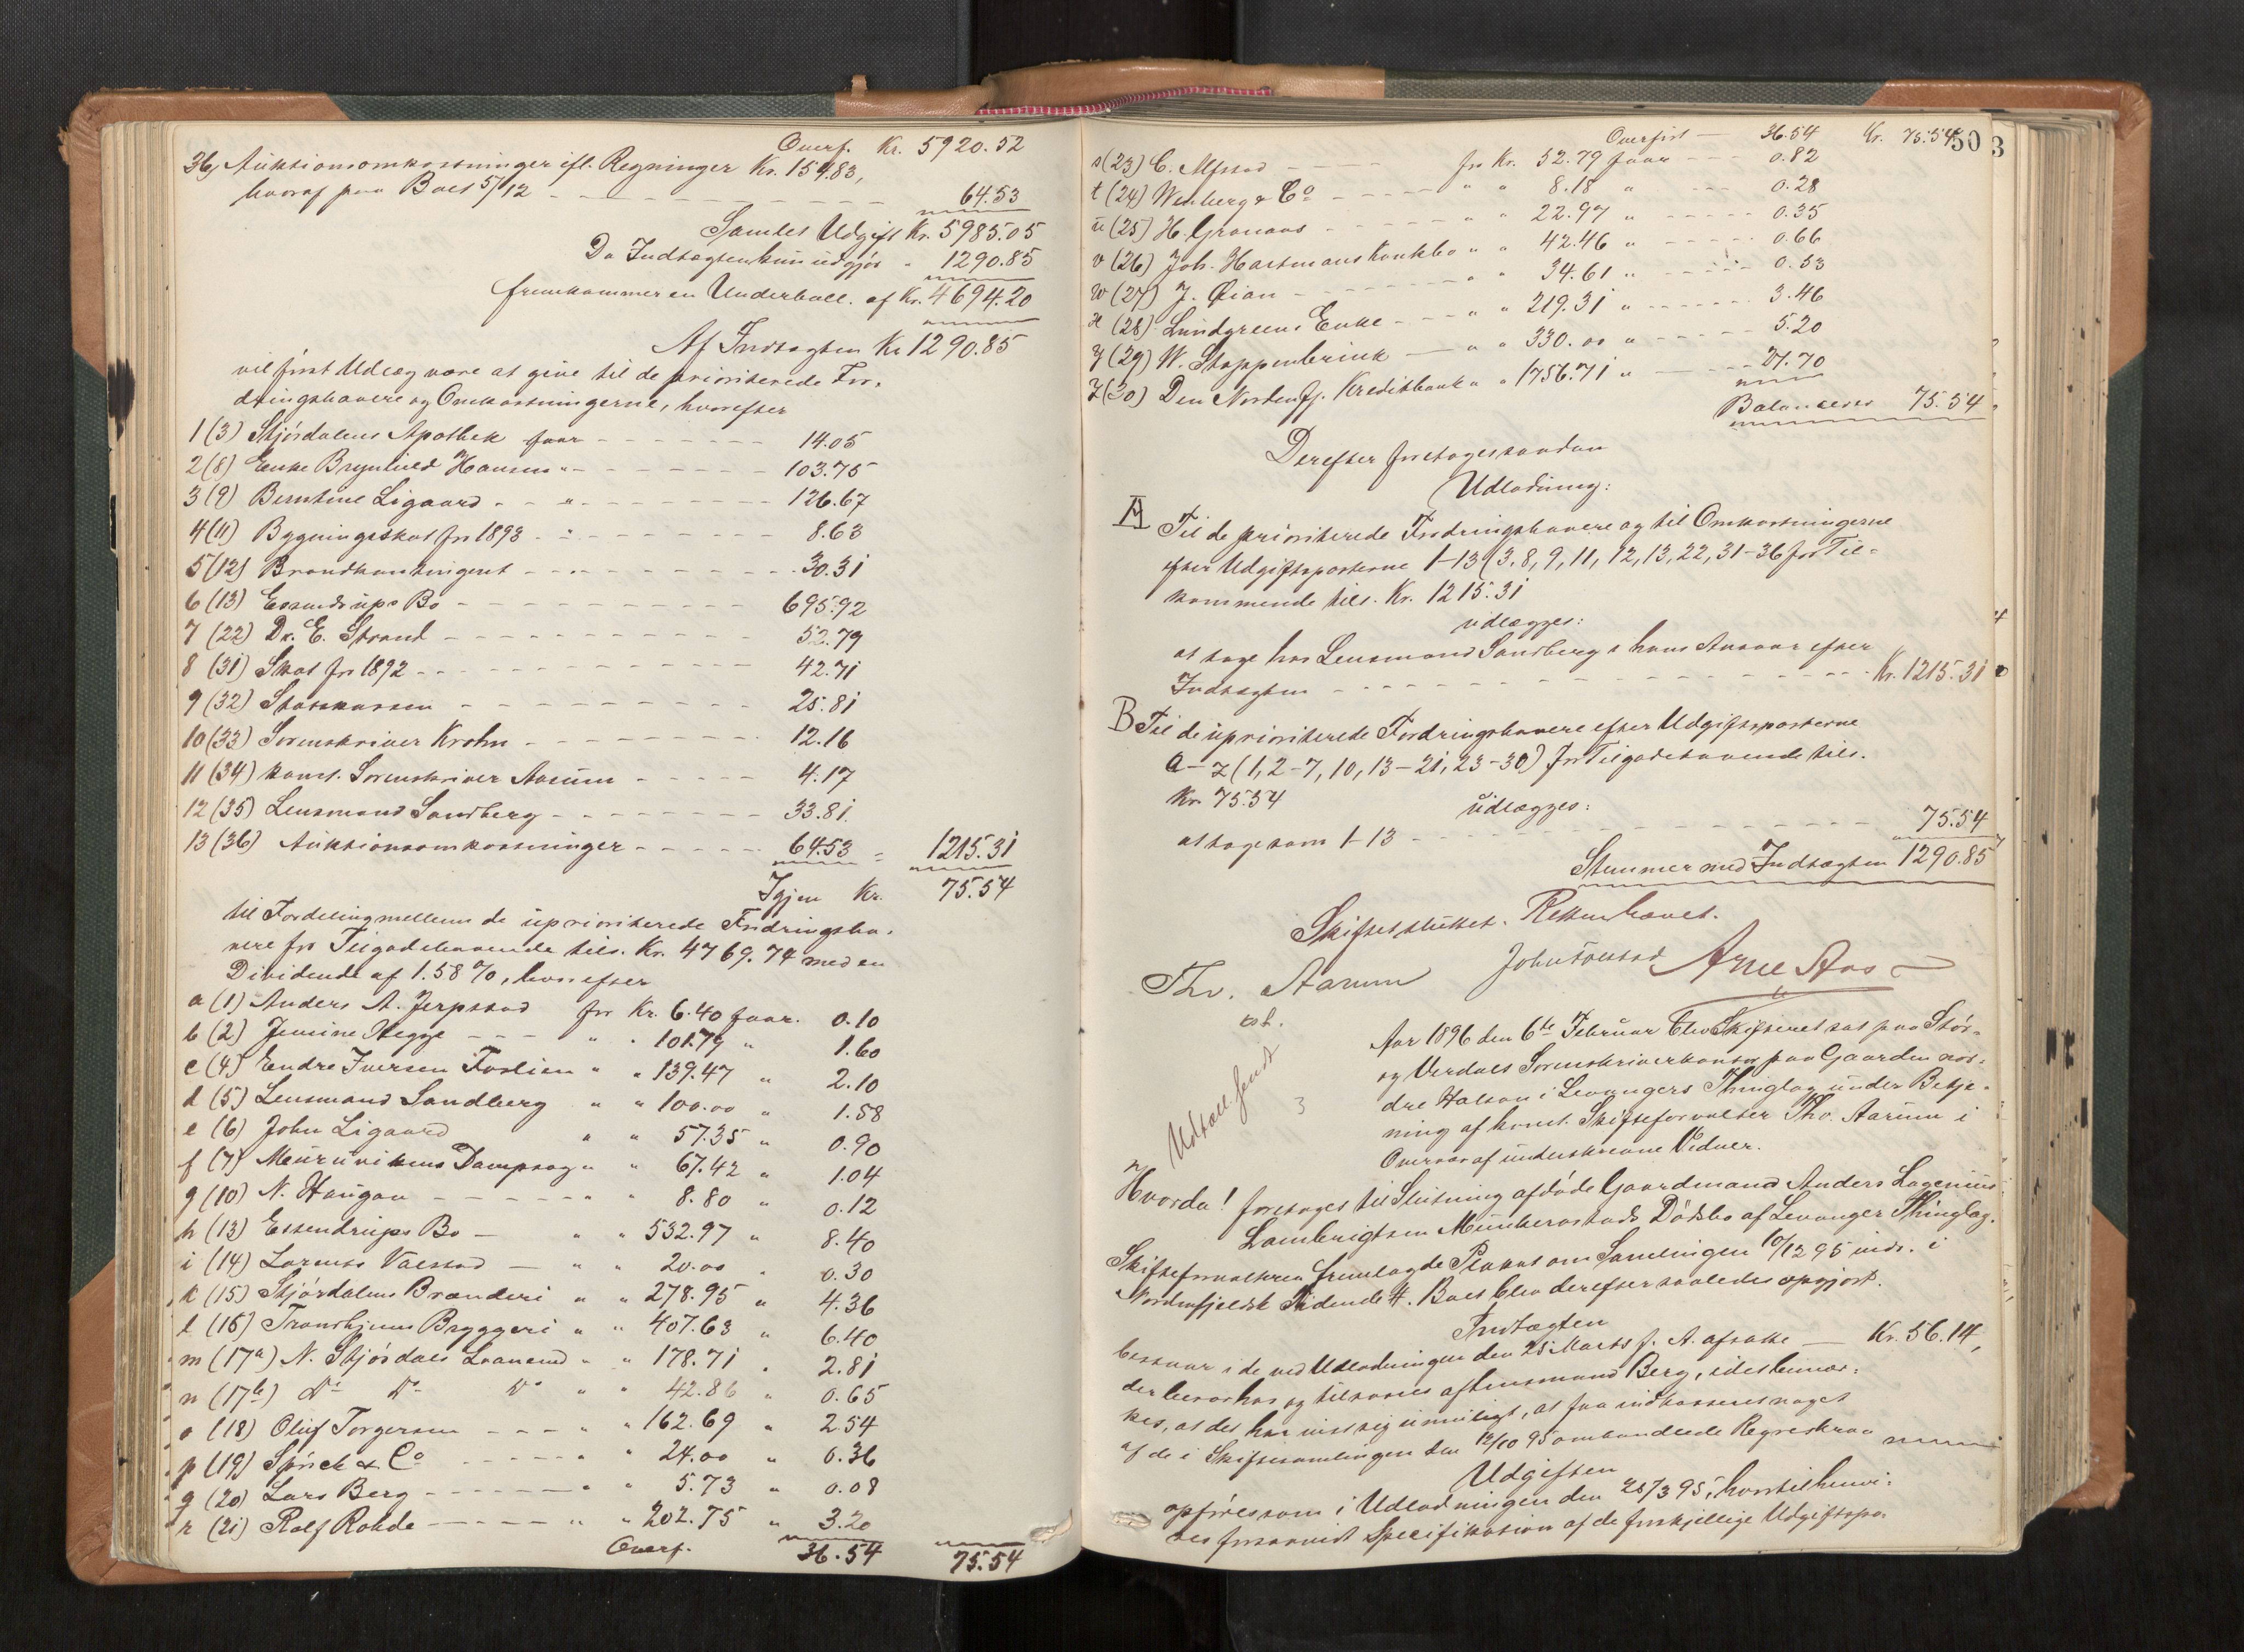 Overf. Kr. 5920.52
36, Auktionsomkostninger ifl. Regninger Kr. 159.83,
hvoraf paa Boet 5/12 - - - 64.53
Samlet Udgift Kr. 5985.05
Da Indtægten kun udgjør " 1290.85
fremkommer en Underball. af Kr. 4694.20
Af Indtægten Kr 1290.85
vil først Udlæg være at give til de prioriterede For-
dringshavere og Omkostningerne, hvorefter
1 (3) Stjørdalens Apothek faar - - - 14.05
2 (8) Enke Brynhild Hansen " - - - 103.75
3 (9) Berntine Ligaard - - " - - - 126.67
4 (11) Bygningsskat for 1893 - " - - - 8.63
5 (12) Brandkontingent - - - 30.31
6 (13) Essendrups Bo - - - 695.92
7 (22) Dr. E. Strand - - - 52.79
8 (31) Skat for 1892 - - - 42.71
9 (32) Statskassen - - - 25.81
10 (33) Sorenskriver Krohn - - - 12.16
11 (34) konst. Sorenskriver Aarum - - - 4.17
12 (35) Lensmand Sandberg - - - 33.81
13 (36) Auktionsomkostninger - - - 64.53 = 1215.31
Igjen Kr. 75.54
til Fordeling mellem de uprioriterede Fordringsha-
vere for Tilgodehavende tils. Kr. 4769.74 med en
Dividende af 1.58 %, hvorefter
a (1) Anders A. Jerpstad for Kr. 6.40 faar. 0.10
b (2) Jemine Hegge - - - " " 101.79 " 1.60
c (4) Endre Iversen Foslien " " 139.47 " 2.10
d (5) Lensmand Sandberg " " 100.00 " 1.58
e (6) John Ligaard " " 57.35 " 0.90
f (7) Meuruvikens Dampsag " " 67.42 " 1.04
g (10) N. Haugan - - - " " 8.80 " 0.12
h (13) Essendrups Bo - " " 532.97 " 8.40
i (14) Laurits Valstad - " " 20.00 " 0.30
k (15) Stjørdalens Brænderi " " 278.95 " 4.36
l (16) Trondhjems Bryggeri " " 407.63 " 6.40
m (17a) N. Stjørdals Laaneind " " 178.71 " 2.81
n (17b) Do Do Do " " 42.86 " 0.65
o (18) Oluf Torgersen - - - " " 162.69 " 2.54
p (19) Sprick & Co - - - " 24.00 " 0.36
q (20) Lars Berg - - - " " 5.73 " 0.08
r (21) Rolf Rohde - - - " " 202.75 " 3.20
Overf. 36.54 75.54
Overført - 36.54 Kr. 75.54
503
s (23) C. Alfstad - - - for Kr. 52.79 faar - - 0.82
t (24) Wenberg & Co - - - " " 8.18 " - - - 0.28
u (25) H. Granaas - - - " " 22.97 " - - - 0.35
v (26) Joh. Hartmans Konkbo " " 42.46 " - - - 0.66
w (27) J. Øian - - - " " 34.61 " - - - 0.53
x (28) Lundgreens Enke - - - " " 219.31 " - - - 3.46
y (29) W. Stoppenbrink - " " 330.00 " - - - 5.20
z (30) Den Nordenfj. Kreditbank " " 1756.71 " - - - 27.70
Balancerer 75.54
Derefter foretages saadan
Udlodning:
A Til de prioriterede Fordringshavere og til Omkostningerne
efter Udgiftsposterne 1-13 (3, 8, 9, 11, 12, 13, 22, 31-36 for Til-
kommende tils. Kr. 1215.31
udlægges:
at tage hos Lensmand Sandberg s hans Ansvar efter
Indtægten - - - Kr. 1215.31
B Til de uprioriterede Fordringshavere efter Udgiftsposterne
a-z (1, 2-7, 10, 13-21, 23-30) for Tilgodehavende tils.
Kr. 75.54
udlægges:
at tage som 1-13 - - - 75.54
Stemmer med Indtægten 1290.85
Skiftet sluttet. Retten hævet.
Thv. Aarum John Tolstad Arne Aas
kst.
Udtall sendt
3
Aar 1896 den 6te Februar blev Skifteret sat paa Stør-
og Værdals Sorenskriverkontor paa Gaarden nor-
dre Halsan i Levangers Thinglag under Betje-
ning af konst. Skifteforvalter Thv. Aarum i
Overvær af underskrevne Vidner.
Hvorda! foretages til Slutning afdøde Gaardmand Anders Lagenius
Lambrigtsen Munkerostads Dødsbo af Levanger Thinglag.
Skifteforvalteren fremlagde Plakat om Samlingen 10/12 95 indr. i
Nordenfjeldsk Tidende #. Boet blev derefter saaledes opgjort.
Indtægten
bestaar i de ved Udlodningen den 25 Marts f. A. afsatte - Kr. 56.14,
der beror hos og tilsvares af Lensmand Berg, idet bemær-
kes, at det har vist sig umuligt, at faa indkasseret noget
af de i Skiftesamlingen den 12/10 95 omhandlede Regreskrav
Udgiften
opføres som i Udlodningen den 25/3 95, hvortil henvi-
ses forsaavidt Specifikation af de forskjellige Udgiftspo-